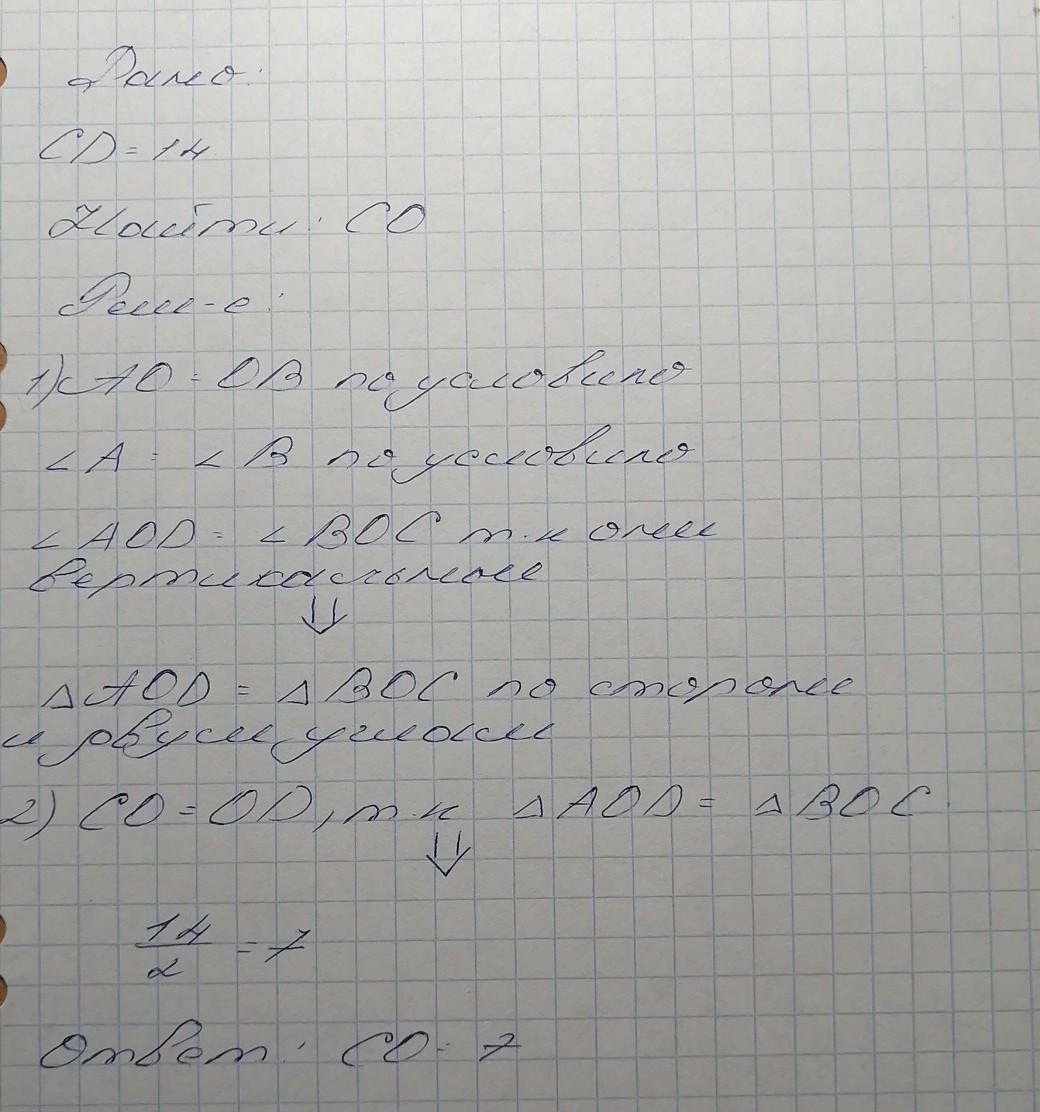 Дано:
CD = 14
Найти: CO
Реш-е:
1) AO = OB по условию
∠A = ∠B по условию
∠AOD = ∠BOC т.к они
вертикальные
⇓
△AOD = △BOC по стороне
и двум углам
2) CO = OD, т.к △AOD = △BOC.
⇓
14/2 = 7
Ответ: CO = 7